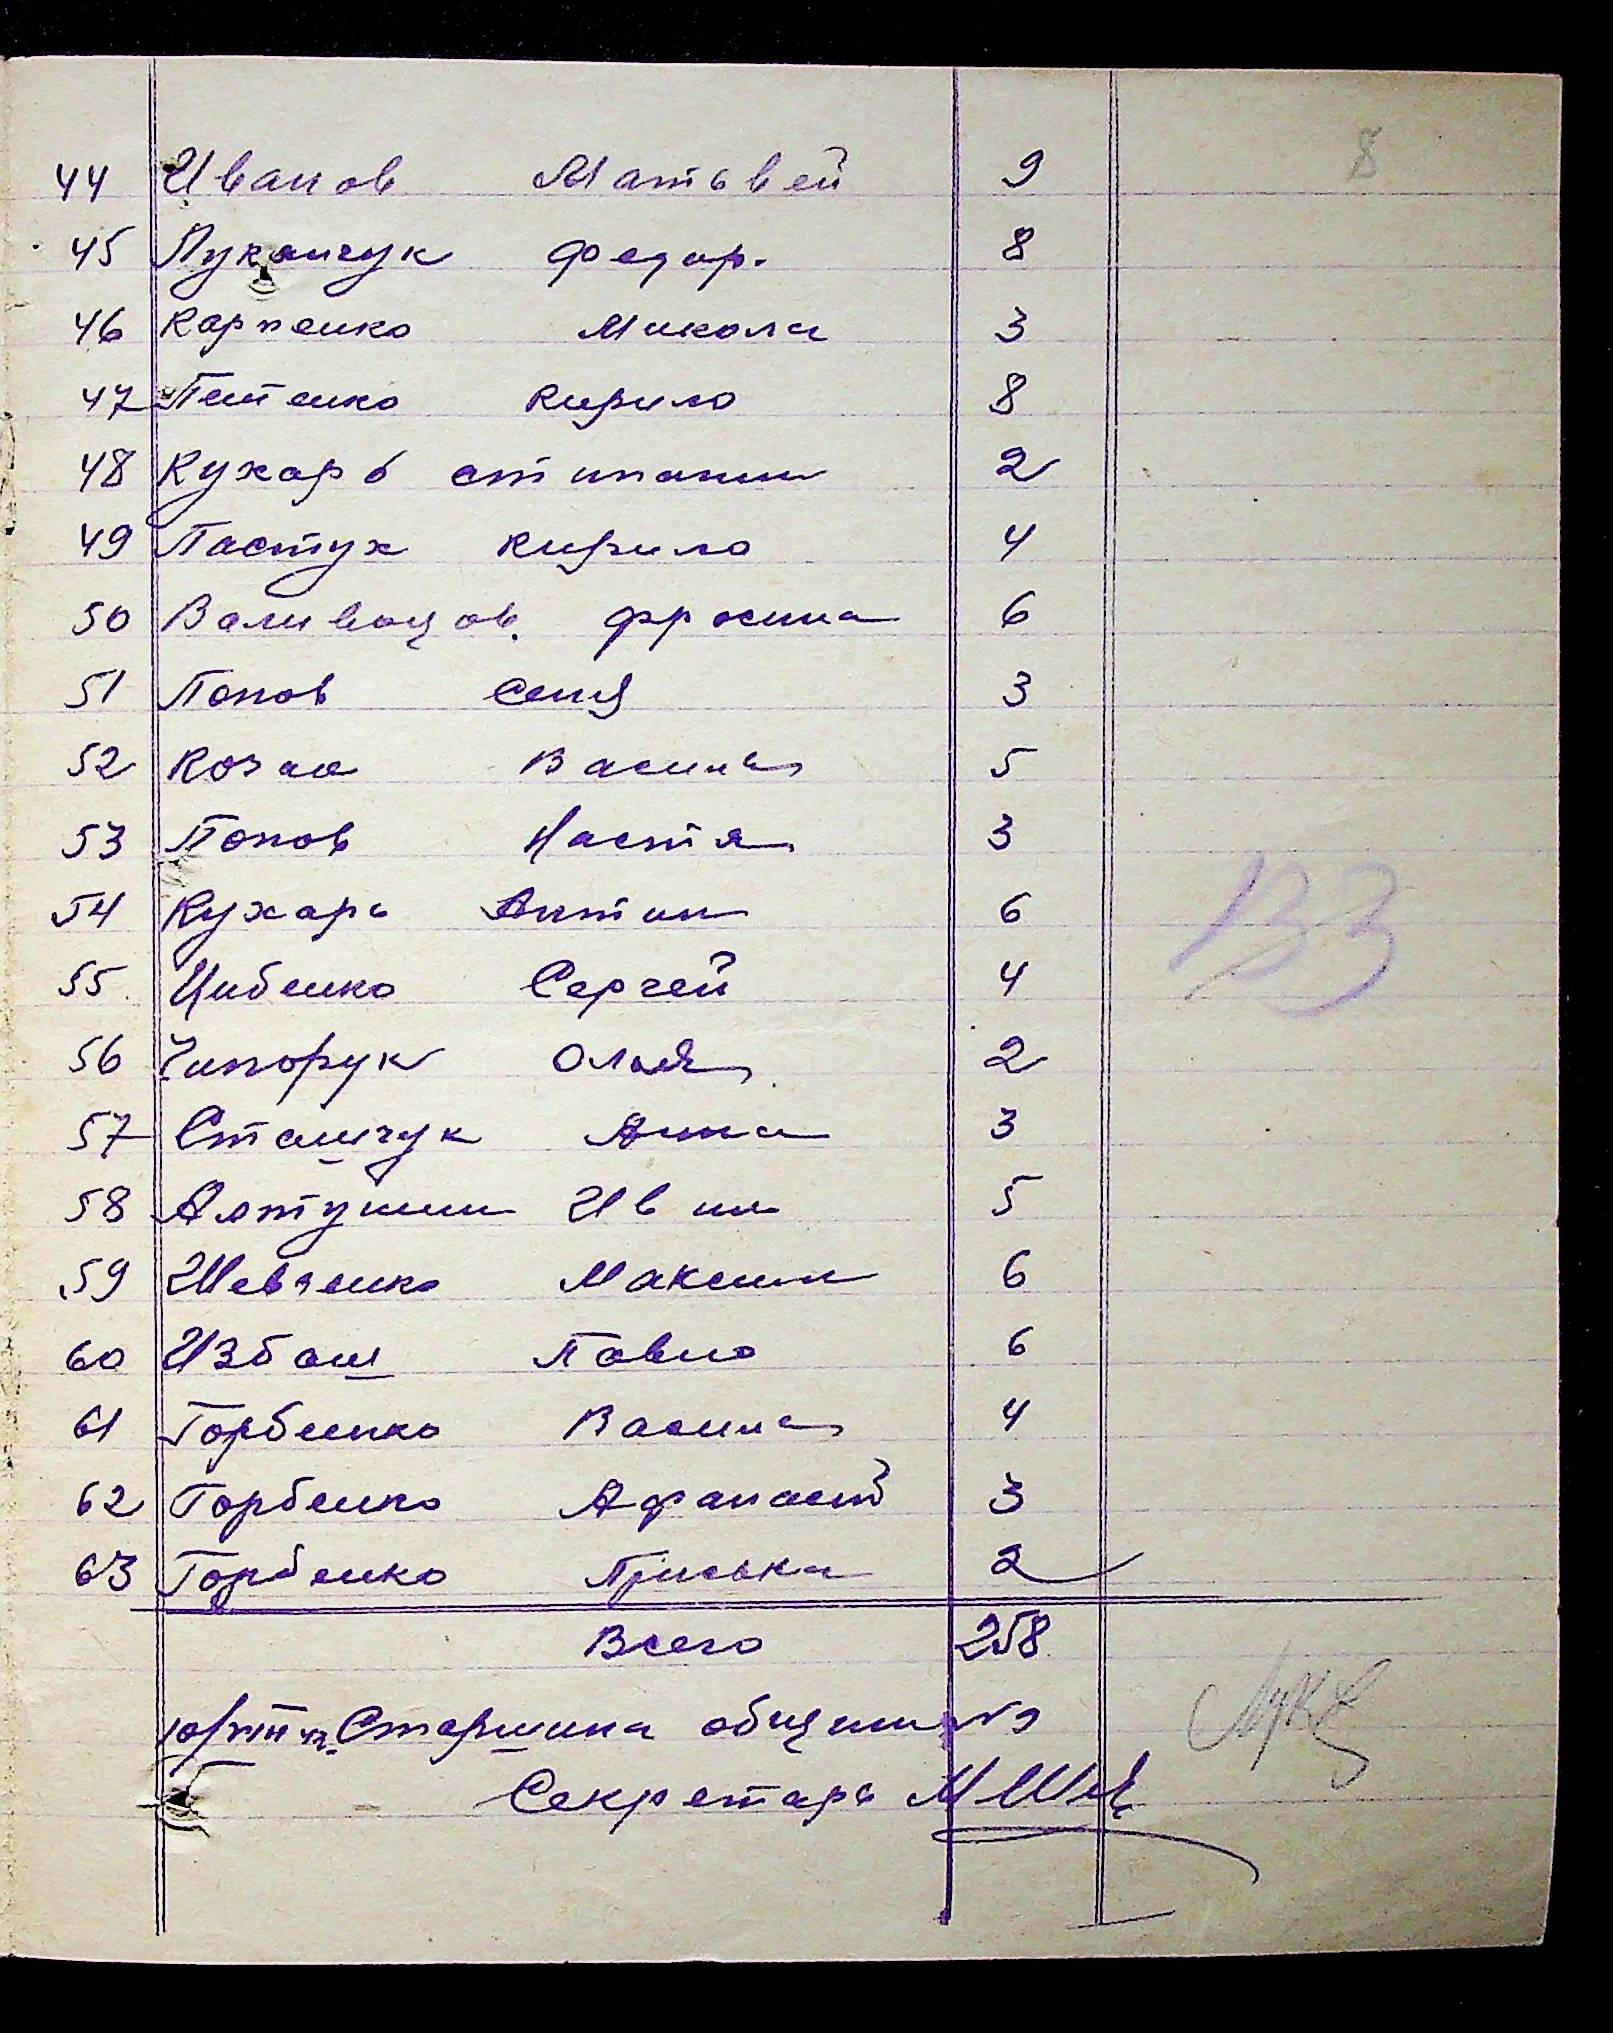 8
44 Иванов Матьвей 9
45 Луканчук Федор. 8
46 Карпенко Микола 3
47 Петенко Кирило 8
48 Кухарь 2
49 Пастух Кирило 4
50 Фросина 6
51 Попов Сеня 3
52 Козак Василь 5
53 Попов Настя 3
54 Кухарь Антин 6
55 Цибенко Сергей 4
56 Чипорук Ольга 2
57 Станчук Анна 3
58 Алтунин Иван 5
59 Шевченко Максим 6
60 Избаш Павло 6
61 Горбенко Василь 4
62 Горбенко Афанасий 3
63 Горбенко Приська 2
133
Всего 258
Старшина общини №3
Секретарь МШев